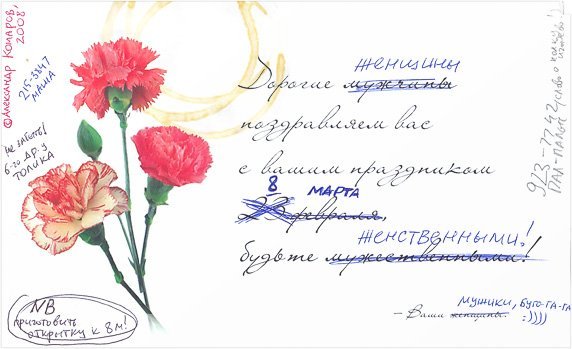 ©Александр Комаров, 2008
215-3347
МАША
НЕ ЗАБЫТЬ!
6-го ДР. У
ТОЛИКА
ЖЕНЩИНЫ
Дорогие мужчины
поздравляем вас
с вашим праздником
8 МАРТА
23 февраля,
ЖЕНСТВЕННЫМИ!
будьте мужественными!
МУЖИКИ, БУГО-ГА-ГА
:)))))
– Ваши женщины.
NB
приготовить
открытку к 8м!
923-7742